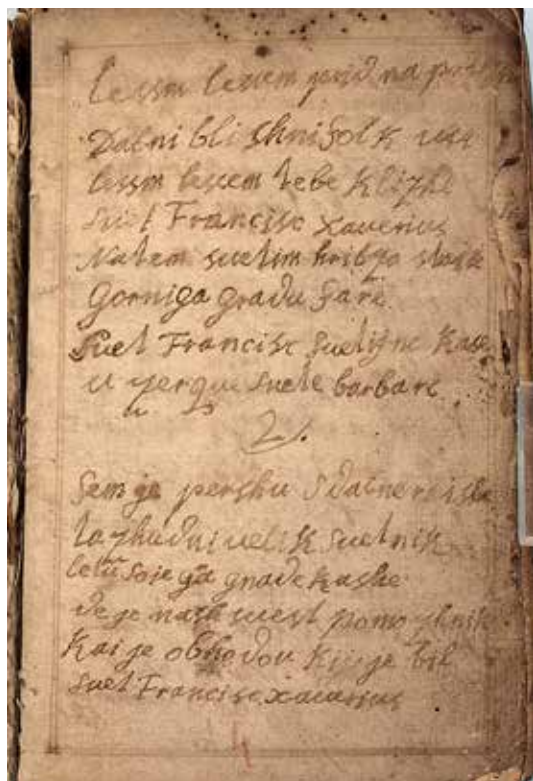 lessm lessem prid na
Dalni bli shni folk
lessm lessem tebe Klizhe
suet Francisc xaverius
Na tem suetim hribzo
Gorniga gradu fare
suet Francisc suetigne Kashe
u zerque suete barbare
2.
sem je pershu s dalne
ta zhudni velik suetnik
letu soje ga gnade kashe
de je nash suest pomozhnik
Kai je obhodou Kir je bil
suet Francisc xaverius